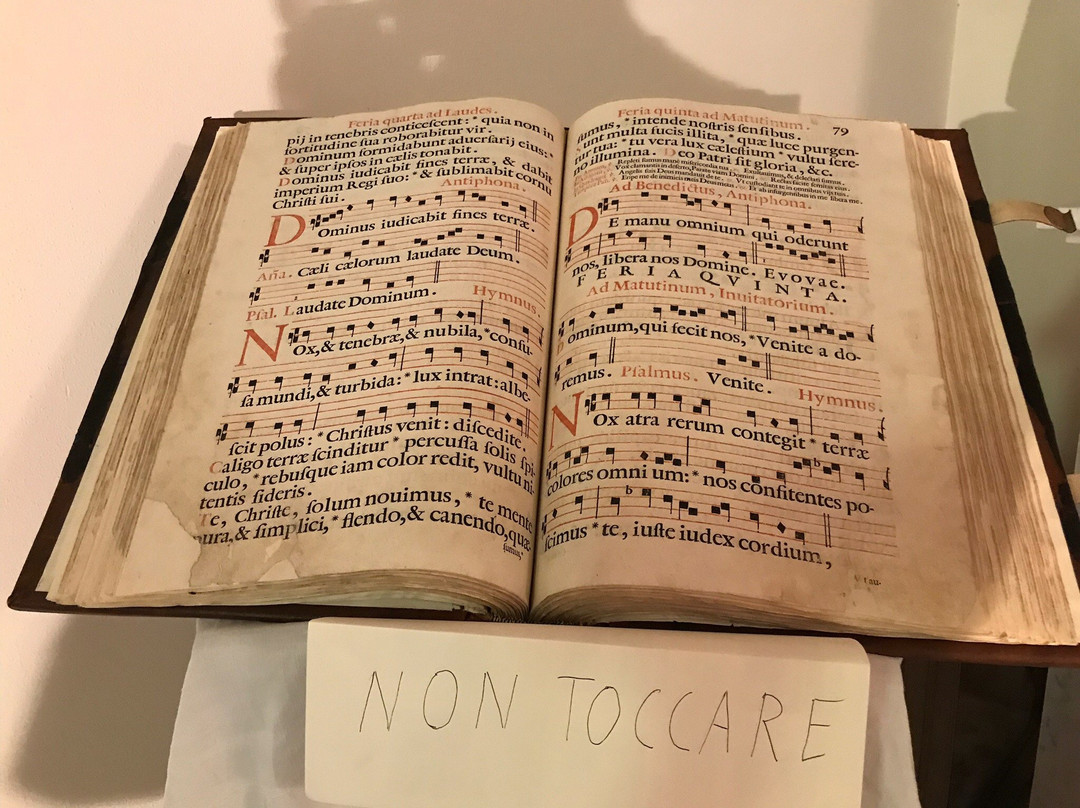 Feria quarta ad Laudes.
pij in tenebris conticeſcent: * quia non in
fortitudine ſua roborabitur vir.
Dominum formidabunt aduerſarij eius: *
& ſuper ipſos in cælis tonabit.
Dominus iudicabit fines terræ, & dabit
imperium Regi ſuo: * & ſublimabit cornu
Chriſti ſui.
Antiphona.
DOminus iudicabit fines terræ.
Aña. Cæli cælorum laudate Deum.
Pſal. Laudate Dominum. Hymnus.
NOx, & tenebræ, & nubila, * confu-
ſa mundi, & turbida: * lux intrat: albe-
ſcit polus: * Chriſtus venit: diſcedite.
Caligo terræ ſcinditur * percuſſa ſolis ſpi-
culo, * rebuſque iam color redit, vultu ni-
tentis ſideris.
Te, Chriſte, ſolum nouimus, * te mente
pura, & ſimplici, * flendo, & canendo, quæ-
ſumus,
Feria quinta ad Matutinum. 79
ſumus, * intende noſtris ſenſibus.
Sunt multa fucis illita, * quæ luce purgen-
tur tua: * tu vera lux cæleſtium * vultu ſere-
no illumina. Deo Patri ſit gloria, &c.
Ad Benedictus, Antiphona.
DE manu omnium qui oderunt
nos, libera nos Domine. Evovae.
FERIA QVINTA.
Ad Matutinum, Inuitatorium.
Dominum, qui fecit nos, * Venite a do-
remus. Pſalmus. Venite. Hymnus.
NOx atra rerum contegit * terræ
colores omnium: * nos confitentes po-
ſcimus * te, iuſte iudex cordium,
NON TOCCARE